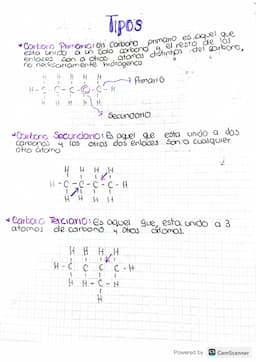 Tipos
* Carbono Primario: Un carbono primario es aquel que
esta unido a un solo carbono y el resto de los
enlaces son a otros atomos distintos del carbono,
no necesariamente hidrogenos
H H H H H
H - C - C - C - C - C - H
Primario
H H H H H
Secundario
* Carbono Secundario: Es aquel que esta unido a dos
carbonos y los otros dos enlaces son a cualquier
otro atomo
H H H H
H - C - C - C - C - H
H H H H
* Carbono Terciario: Es aquel que esta unido a 3
atomos de carbono y otros atomos.
H H H H
H - C C C C - H
H H - C - H
H
Powered by CS CamScanner